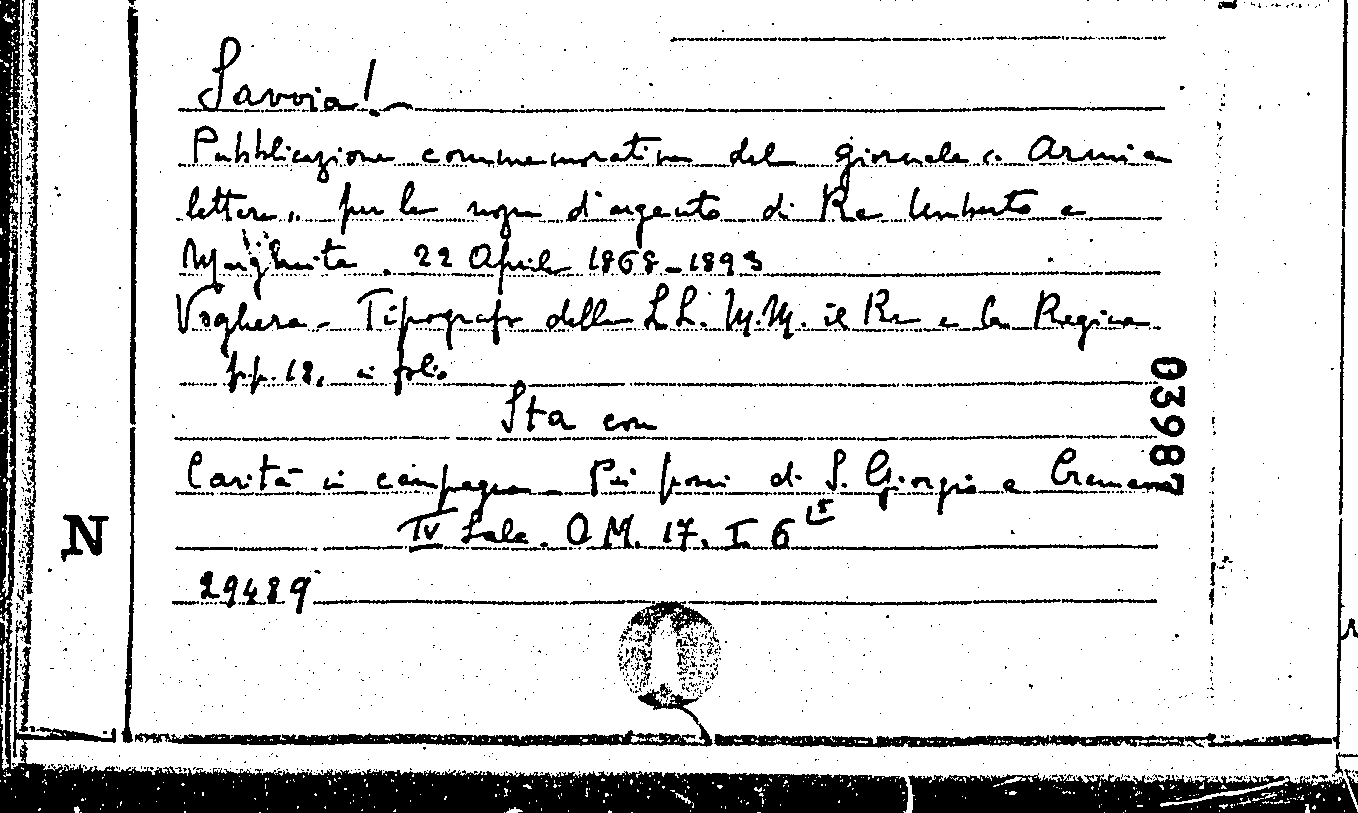 Savoia! -
Pubblicazione commemorativa del giornale « Armi e
lettere » per le nozze d'argento di Re Umberto e
Margherita. 22 Aprile 1868-1893
Voghera - Tipografo delle LL. MM. il Re e la Regina
pp. 18, in fol.
Sta con
Carità in campagna - Pei poveri di S. Giorgio a Cremano
IV Sala. O M. 17. I. 6
03987
N
29489